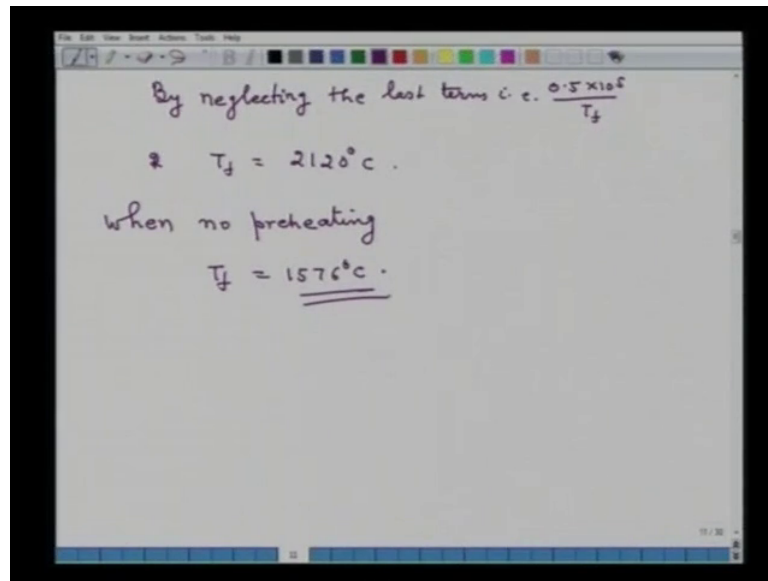 File Edit View Insert Actions Tools Help
By neglecting the last terms i.e. 0.5 × 10⁵ / T_f
T_f = 2120°C.
when no preheating
T_f = 1576°C.